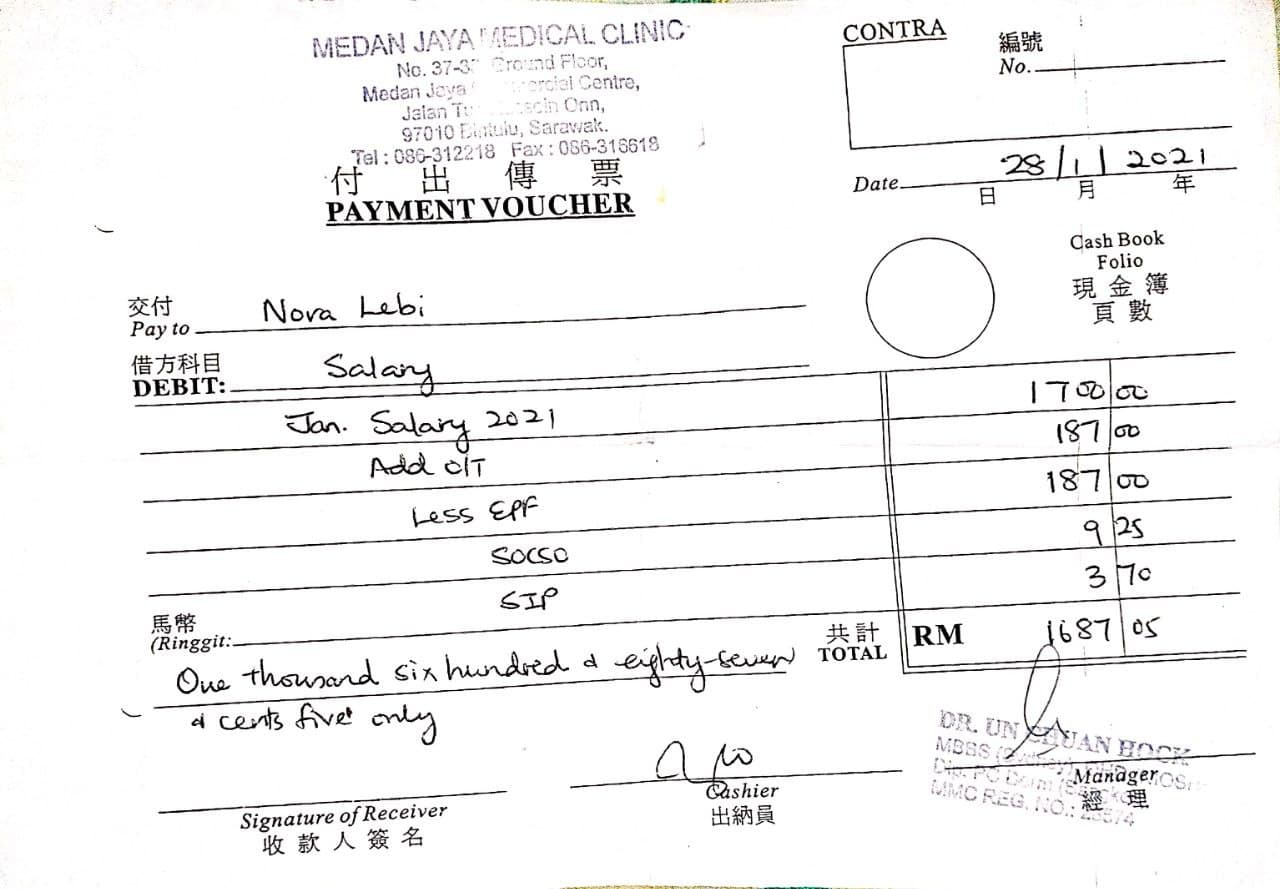 MEDAN JAYA MEDICAL CLINIC
No. 37-3 Ground Floor,
Medan Jaya Commercial Centre,
Jalan Tun Hussein Onn,
97010 Bintulu, Sarawak.
Tel : 086-312218 Fax : 086-316618
付出傳票
PAYMENT VOUCHER
CONTRA
編號
No.
Date 28/1/2021
日 月 年
Cash Book
Folio
現金簿
頁數
交付
Pay to Nora Lebi
借方科目
DEBIT: Salary
Jan. Salary 2021 1700 00
Add O/T 187 00
Less EPF 187 00
SOCSO 9 25
SIP 3 70
馬幣
(Ringgit:
共計
TOTAL RM 1687 05
One thousand six hundred & eighty-seven
& cents five only
Signature of Receiver
收款人簽名
Cashier
出納員
DR. UN CHUAN HOCK
MBSS (Sydney),
Manager
經理
MMC REG. NO.: